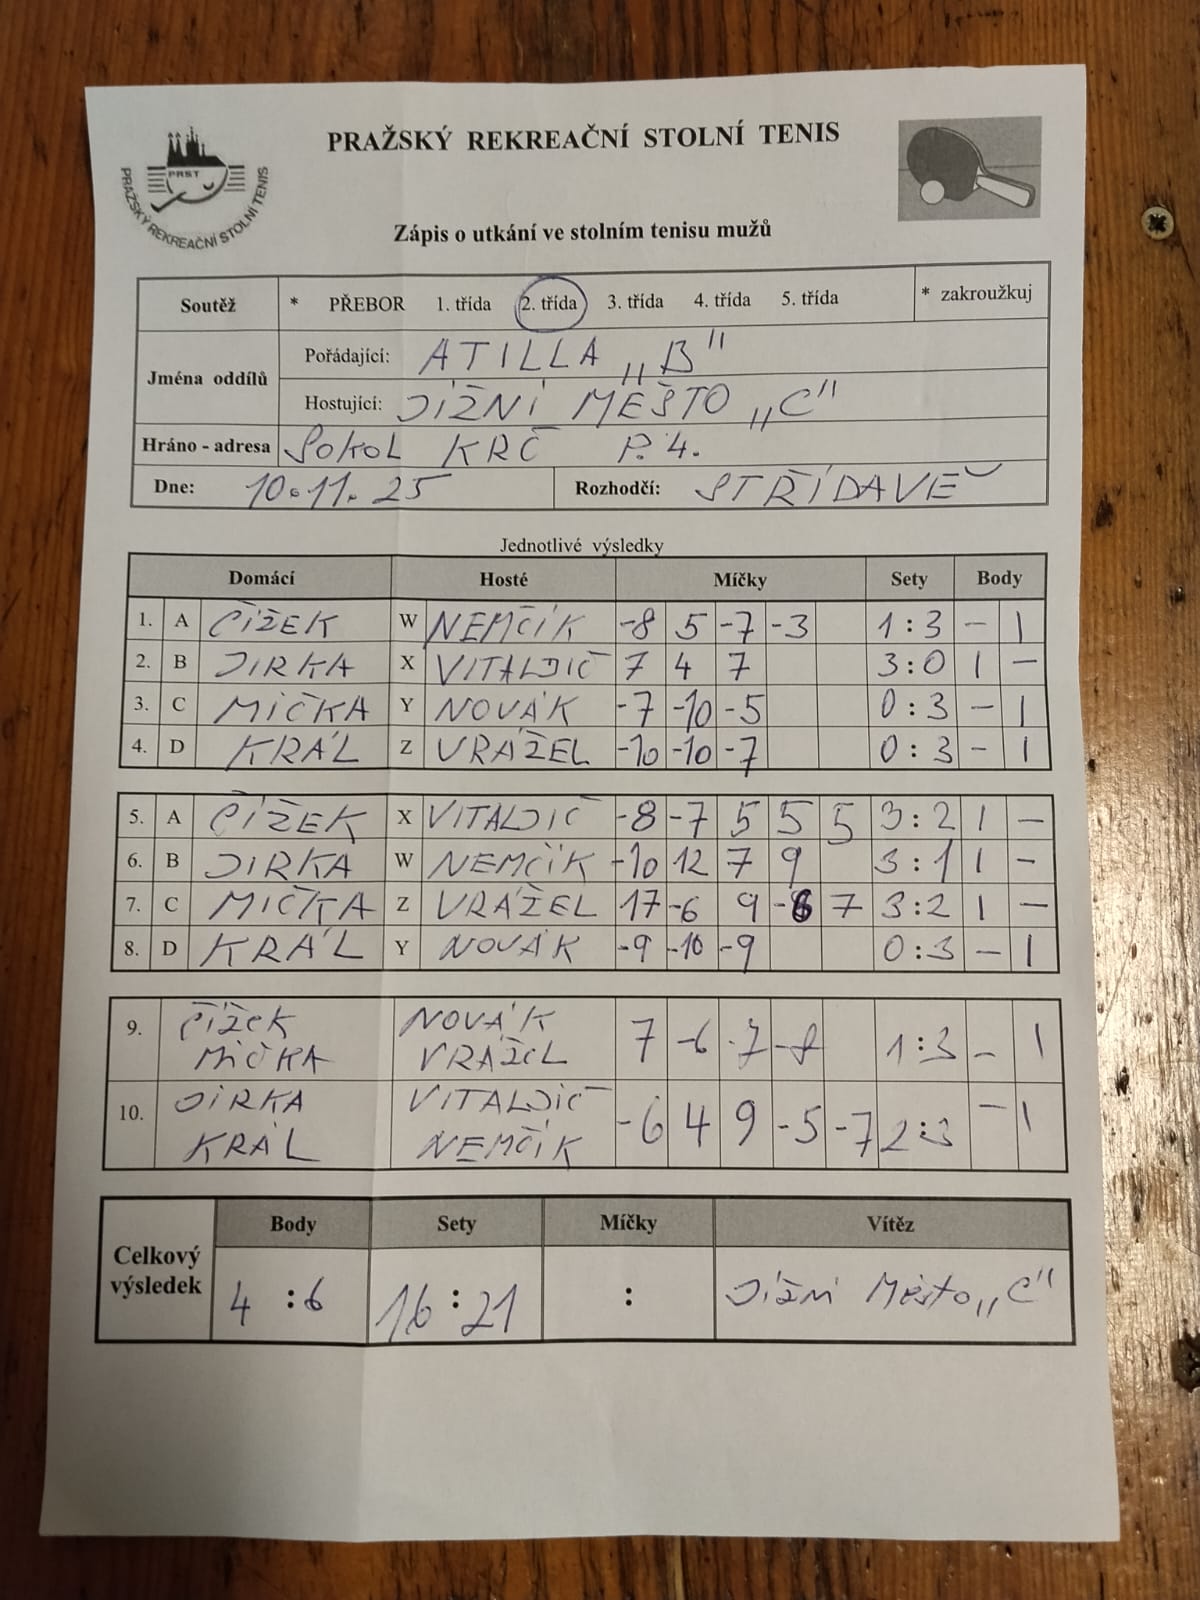 PRAŽSKÝ REKREAČNÍ STOLNÍ TENIS
PRST
PRAŽSKÝ REKREAČNÍ STOLNÍ TENIS
Zápis o utkání ve stolním tenisu mužů
Soutěž * PŘEBOR 1. třída 2. třída 3. třída 4. třída 5. třída * zakroužkuj
Jména oddílů
Pořádající: ATILLA „B"
Hostující: JIŽNÍ MĚSTO „C"
Hráno - adresa SOKOL KRČ P.4.
Dne: 10.11.25 Rozhodčí: STŘÍDAVĚ
Jednotlivé výsledky
Domácí Hosté Míčky Sety Body
1. A ČÍŽEK W NEMČÍK -8 5 -7 -3 1:3 - 1
2. B JIRKA X VITALJIČ 7 4 7 3:0 1 -
3. C MIČKA Y NOVÁK -7 -10 -5 0:3 - 1
4. D KRÁL Z VRÁŽEL -10 -10 -7 0:3 - 1
5. A ČÍŽEK X VITALJIČ -8 -7 5 5 5 3:2 1 -
6. B JIRKA W NEMČÍK -10 12 7 9 3:1 1 -
7. C MIČKA Z VRÁŽEL 17 -6 9 7 3:2 1 -
8. D KRÁL Y NOVÁK -9 -10 -9 0:3 - 1
9. ČÍŽEK NOVÁK 7 -6 -7 -8 1:3 - 1
MIČKA VRÁŽEL
10. JIRKA VITALJIČ -6 4 9 -5 -7 2:3 - 1
KRÁL NEMČÍK
Celkový výsledek
Body Sety Míčky Vítěz
4 :6 16:21 : Jižní Město „C"